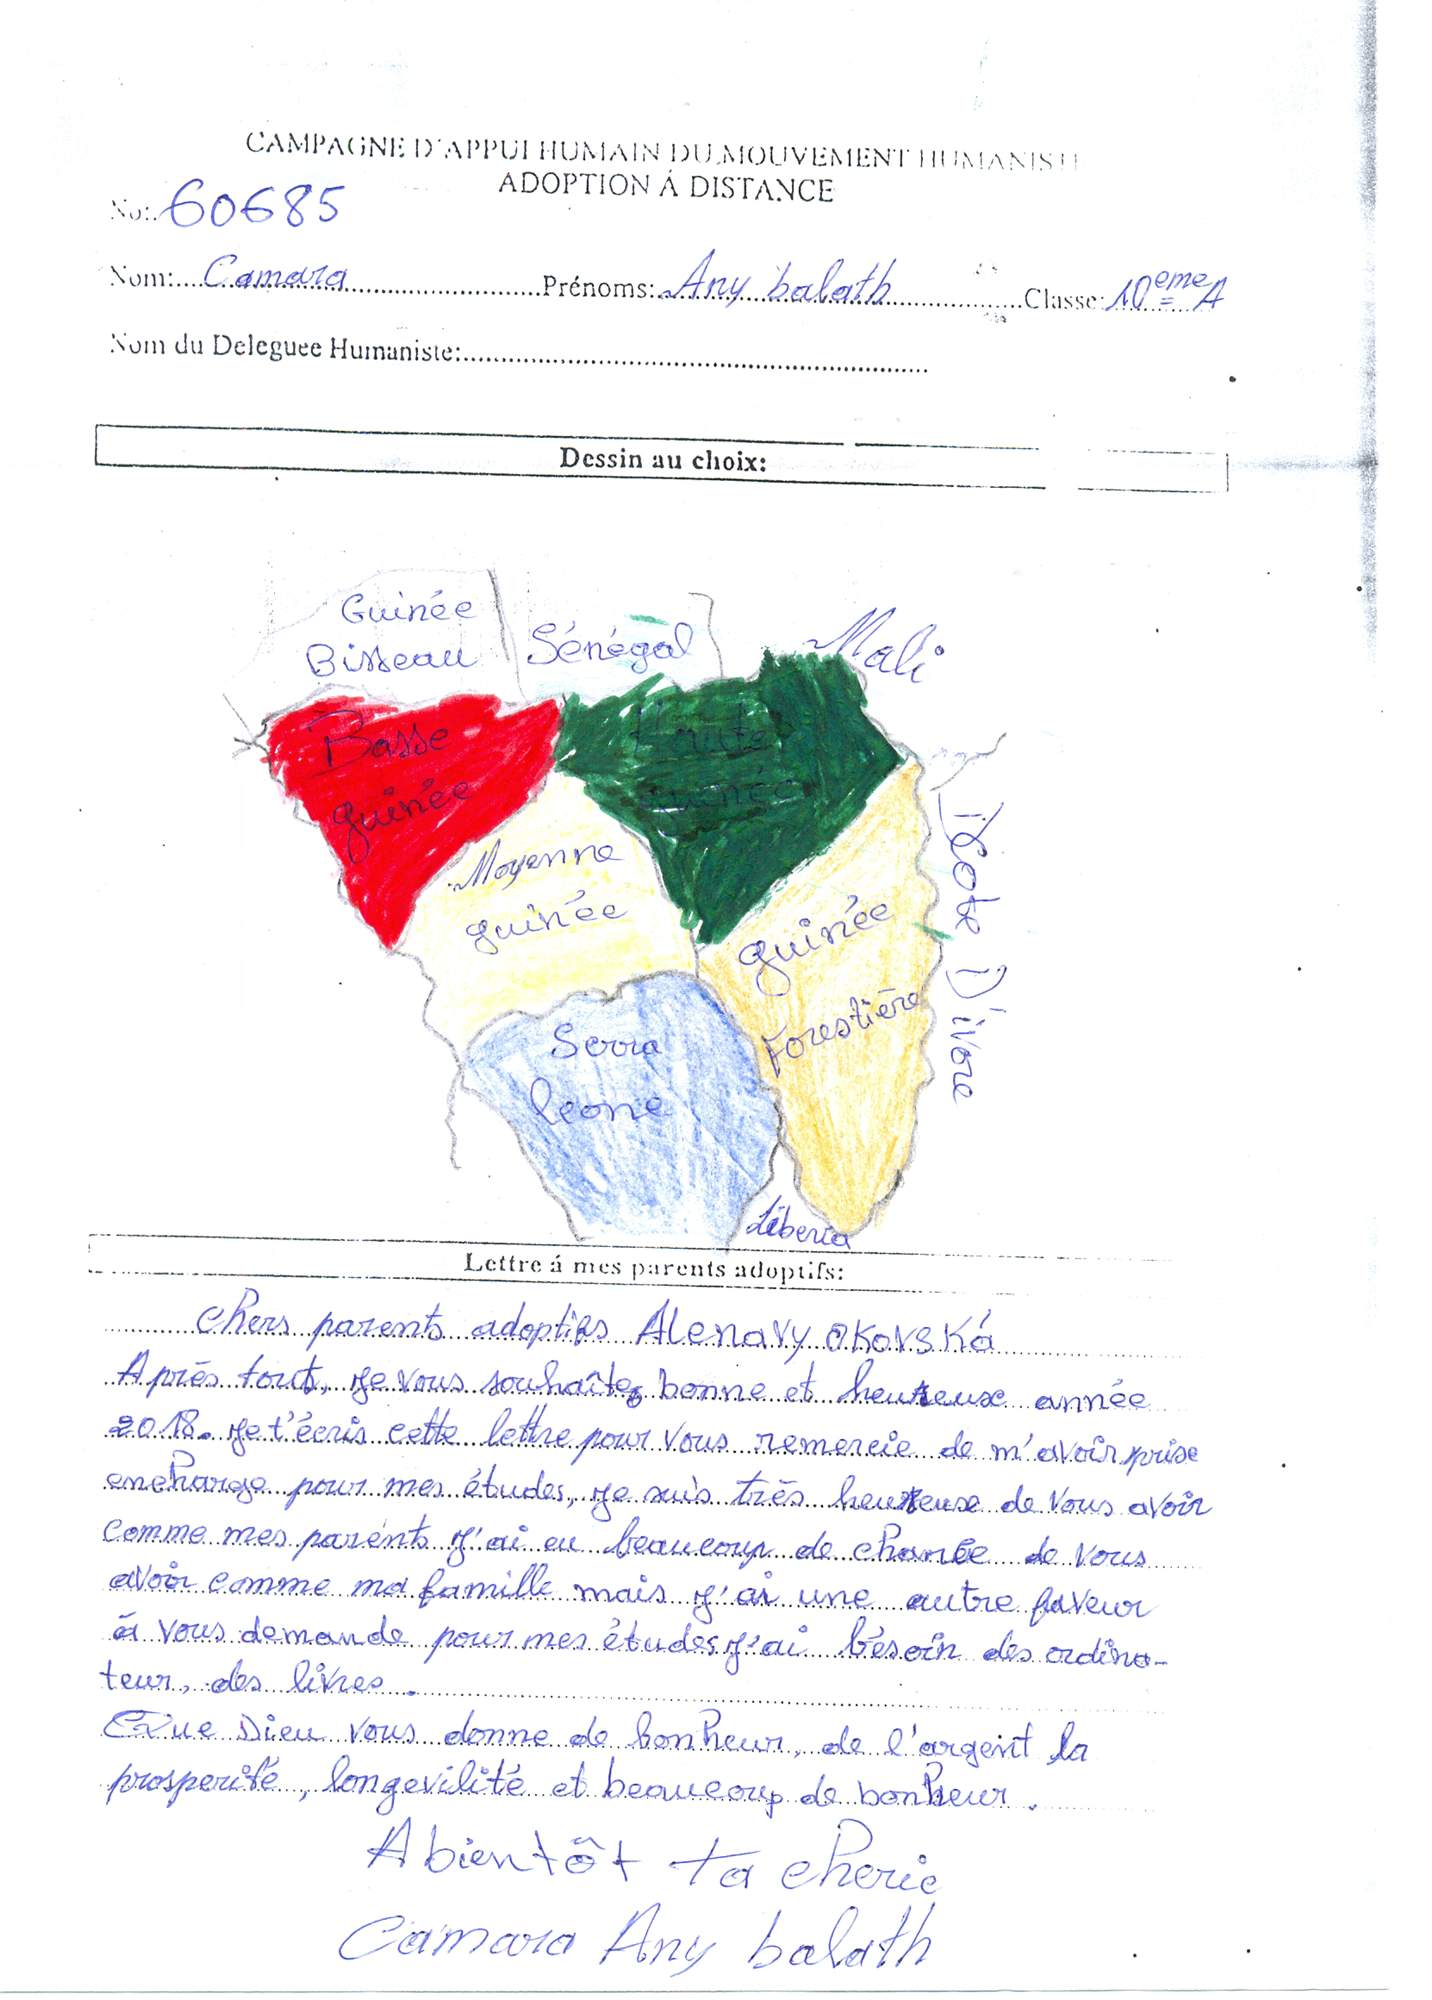 CAMPAGNE D'APPUI HUMAIN DU MOUVEMENT HUMANISTE
ADOPTION Á DISTANCE
No: 60685
Nom: Camara Prénoms: Any balath Classe: 10eme A
Nom du Deleguee Humaniste:
Dessin au choix:
Guinée
Bisseau
Sénégal
Mali
Basse
guinée
Haute
guinée
Moyenne
guinée
guinée
Forestière
Cote D'ivore
Serra
leone
Liberia
Lettre á mes parents adoptifs:
Chers parents adoptifs Alenavy okovská
Après tout, je vous souhaite bonne et heureuse année
2018. je t'écris cette lettre pour vous remercie de m'avoir prise
encharge pour mes études, je suis très heureuse de vous avoir
comme mes parents j'ai eu beaucoup de chance de vous
avoir comme ma famille mais j'ai une autre faveur
à vous demande pour mes études j'ai bésoin des ordina-
teur, des livres.
Que Dieu vous donne de bonheur, de l'argent la
prosperité, longevilité et beaucoup de bonheur.
A bientôt ta cherie
Camara Any balath